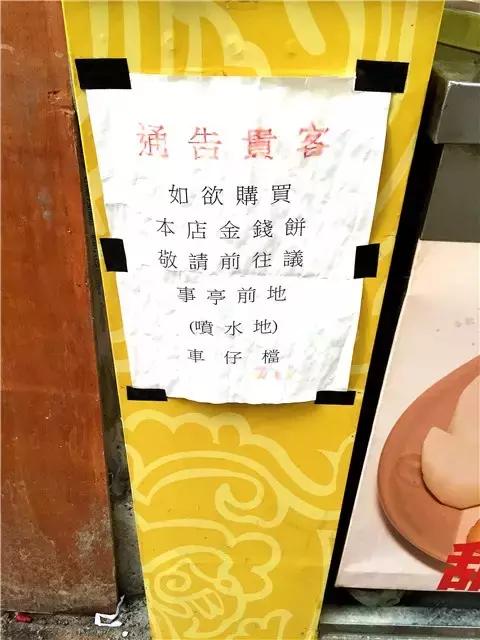 通告貴客
如欲購買
本店金錢餅
敬請前往議
事亭前地
(噴水地)
車仔檔
甜